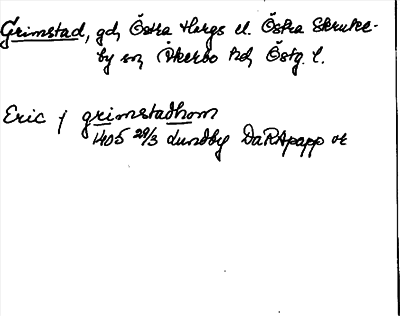 Grimstad, gd, Östra Hargs el. Östra Skrukeby sn, Åkerbo hd, Östg. l.
Eric j grimstadhom
1405 29/3 Lundby DaRApapp or